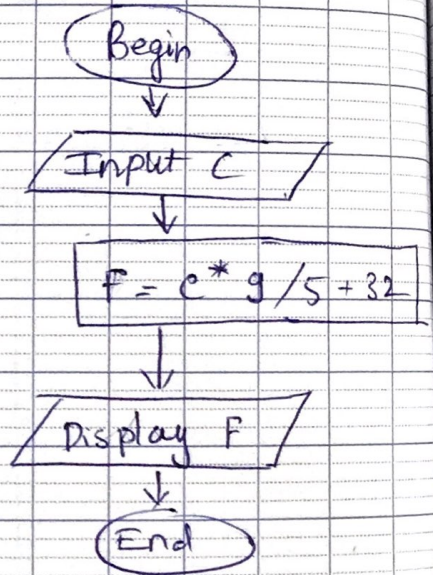 Begin
Input C
F = C * 9 / 5 + 32
Display F
End